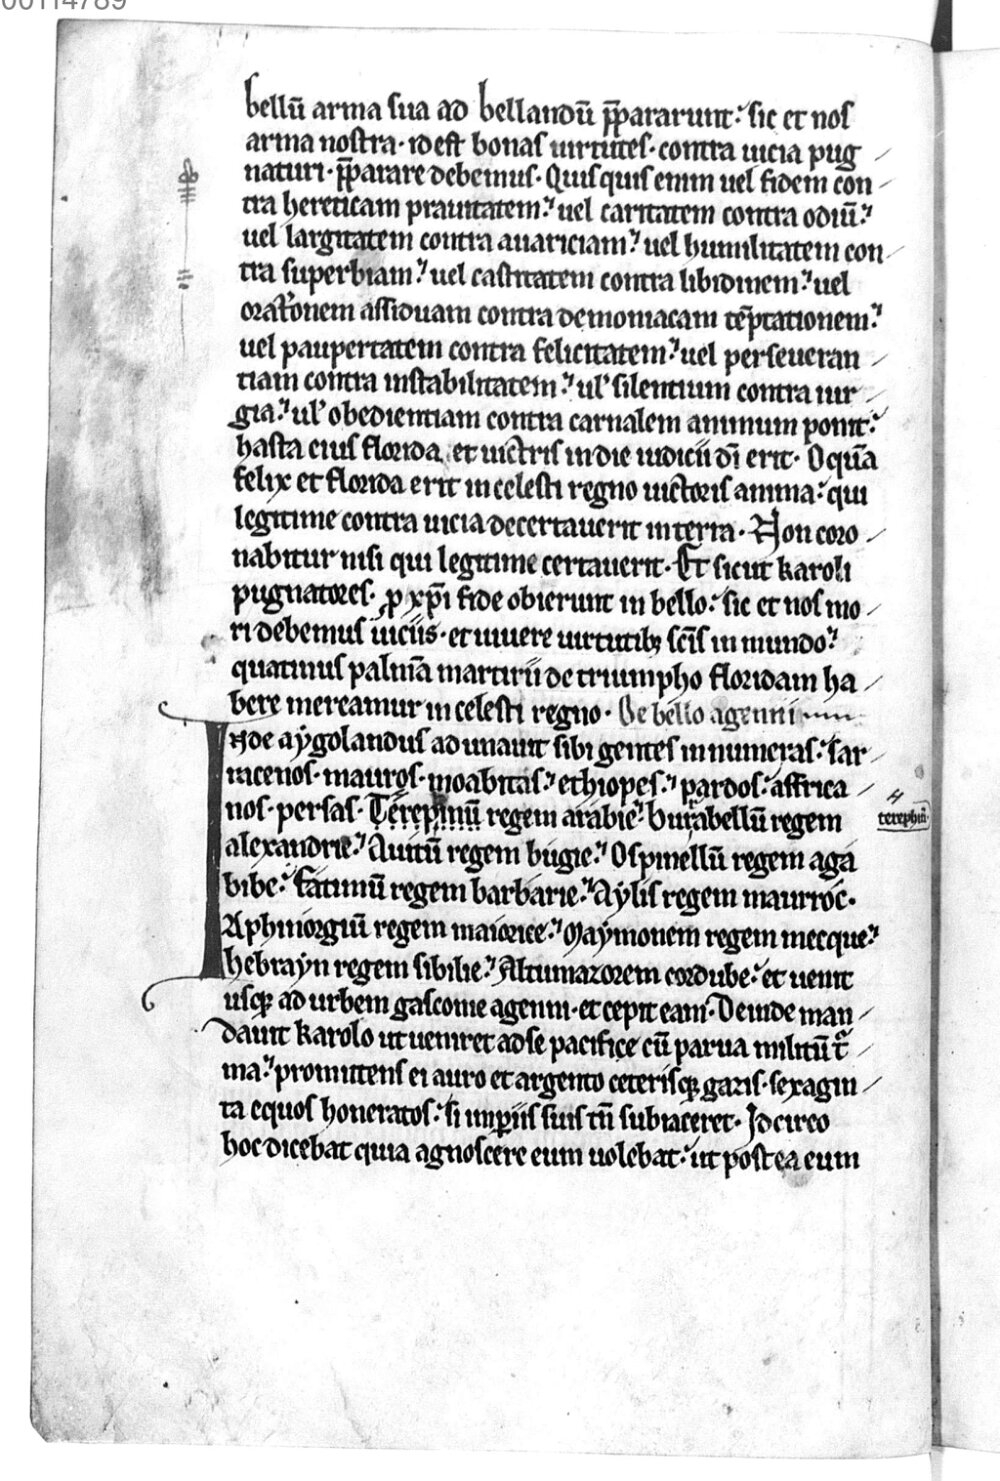 00114789
bellū arma sua ad bellandū p̄pararunt. sic et nos
arma nostra. idest bonas uirtutes. contra uicia pug
naturi. p̄parare debemus. Quisquis enim uel fidem con
tra hereticam prauitatem. uel caritatem contra odiū.
uel largitatem contra auariciam. uel humilitatem con
tra superbiam. uel castitatem contra libidinem. uel
orat̄onem assiduam contra demoniacam tēptationem.
uel paupertatem contra felicitatem. uel perseueran
tiam contra instabilitatem. ul' silentium contra iur
gia. ul' obedientiam contra carnalem animum ponit.
hasta eius florida. et uictris in die iudicii dī erit. O quā
felix et florida erit in celesti regno uictoris anima. qui
legitime contra uicia decertauerit in terra. Non coro
nabitur nisi qui legitime certauerit. Et sicut karoli
pugnatores. pro xp̄i fide obierunt in bello. sic et nos mo
ri debemus uiciis. et uiuere uirtutibꝫ scīs in mundo.
quatinus palmā martirii de triumpho floridam ha
bere mereamur in celesti regno. De bello agenni
Inde aygolandus adunauit sibi gentes innumeras. sar
racenos. mauros. moabitas. ethiopes. pardos. affrica
nos. persas. Terepinū regem arabie. burabellū regem
terephinū
alexandrie. Auitū regem bugie. Ospinellū regem aga
bibe. fatimū regem barbarie. Aylis regem maurroc.
Aphinorgiū regem maiorice. Maymonem regem mecque.
hebrayn regem sibilie. Altumazorem cordube. et uenit
usqꝫ ad urbem gasconie agenni. et cepit eam. Deinde man
dauit karolo ut ueniret ad se pacifice cū parua militū t
ma. promittens ei auro et argento ceterisqꝫ gazis. sexagin
ta equos honeratos. si imꝑiis suis tn̄ subiaceret. Idcirco
hoc dicebat quia agnoscere eum uolebat. ut postea eum